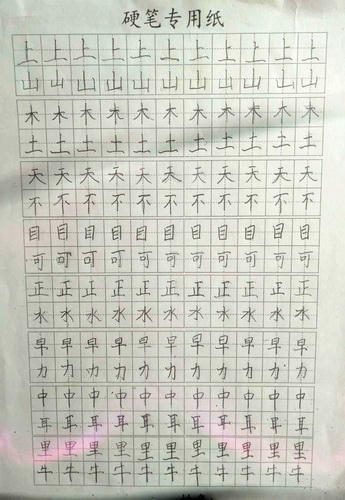 硬笔专用纸
上上上上上上上上上上上
山山山山山山山山山山山
木木木木木木木木木木木
土土土土土土土土土土土
天天天天天天天天天天天
不不不不不不不不不不不
目目目目目目目目目目目
可可可可可可可可可可可
正正正正正正正正正正正
水水水水水水水水水水水
早早早早早早早早早早早
力力力力力力力力力力力
中中中中中中中中中中中
耳耳耳耳耳耳耳耳耳耳耳
里里里里里里里里里里里
牛牛牛牛牛牛牛牛牛牛牛